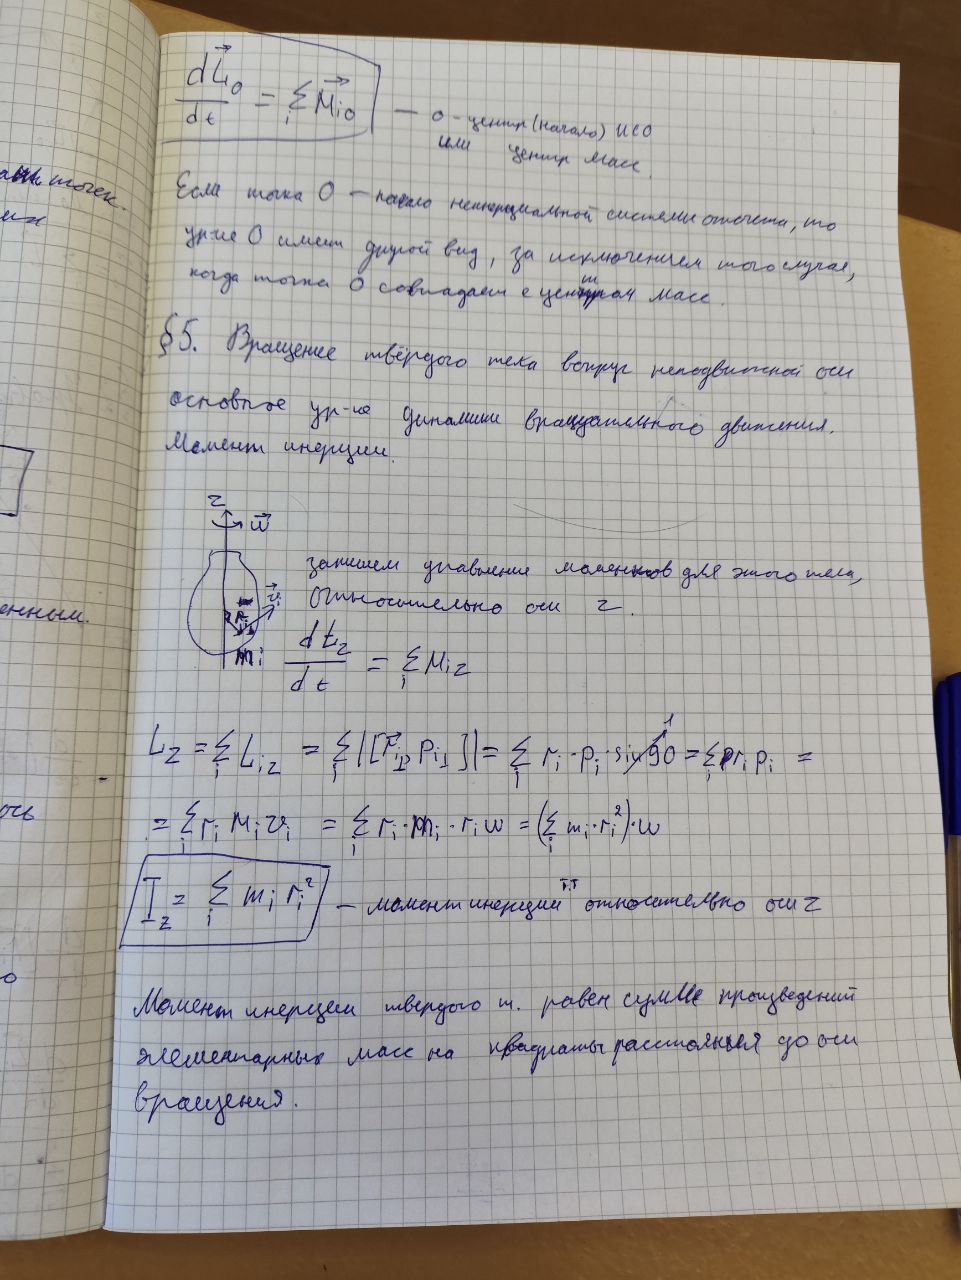 dL⃗₀/dt = Σᵢ M⃗ᵢ₀ — о - центр (начало) ИСО
или центр масс.
Если точка О — начало неинерциальной системы отсчета, то
ур-ие О имеет другой вид, за исключением того случая,
когда точка О совпадает с центром масс.
§5. Вращение твёрдого тела вокруг неподвижной оси
основное ур-ие динамики вращательного движения.
Момент инерции.
z
ω⃗
запишем уравнение моментов для этого тела,
относительно оси z.
v⃗ᵢ
rᵢ
mᵢ
dL_z/dt = Σᵢ Mᵢz
L_z = Σᵢ Lᵢz = Σᵢ |[r⃗ᵢ⊥ pᵢ⊥]| = Σᵢ rᵢ · pᵢ · sin 90 = Σᵢ rᵢ pᵢ =
1
= Σᵢ rᵢ mᵢ vᵢ = Σᵢ rᵢ · mᵢ · rᵢ ω = (Σᵢ mᵢ · rᵢ²) · ω
I_z = Σᵢ mᵢ rᵢ² — момент инерции т.т относительно оси z
Момент инерции твердого т. равен сумме произведений
элементарных масс на квадраты расстояния до оси
вращения.
точек.